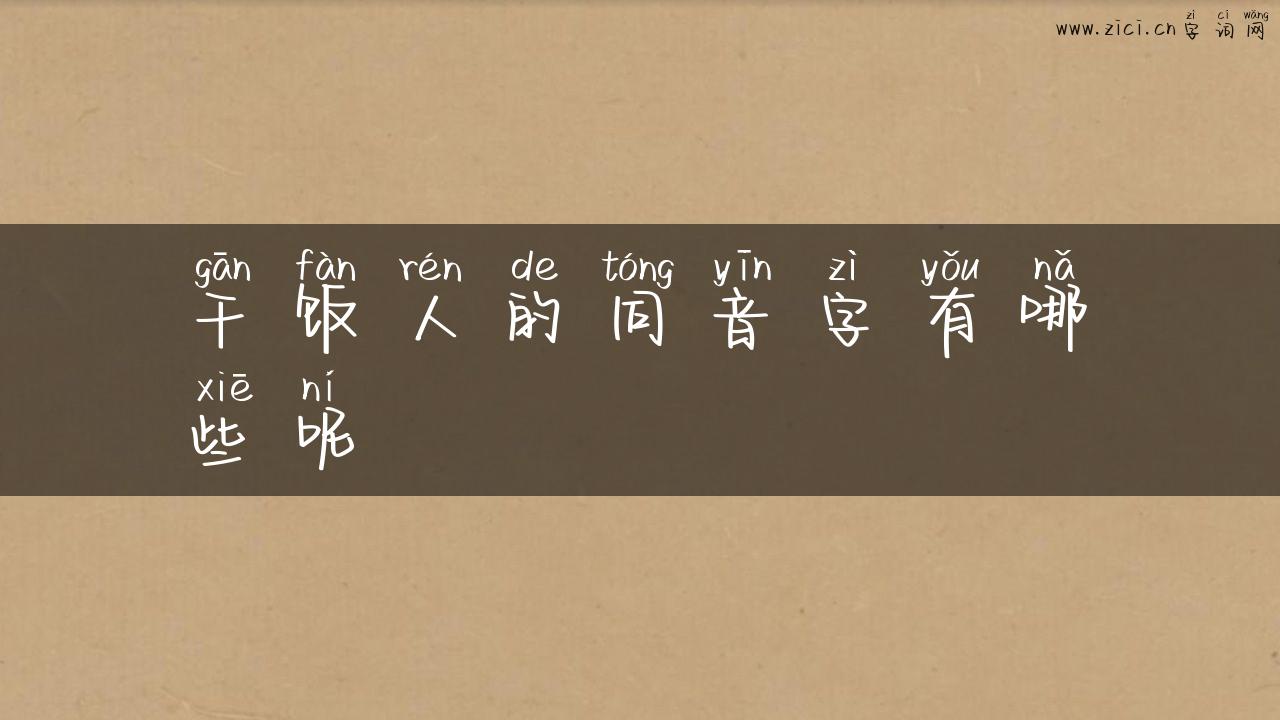 zì cí wǎng
www.zici.cn 字 词 网
gān fàn rén de tóng yīn zì yǒu nǎ
干 饭 人 的 同 音 字 有 哪
xiē ní
些 呢